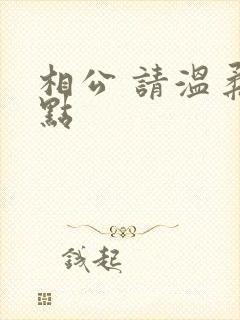 相公 請溫柔
點
錢起